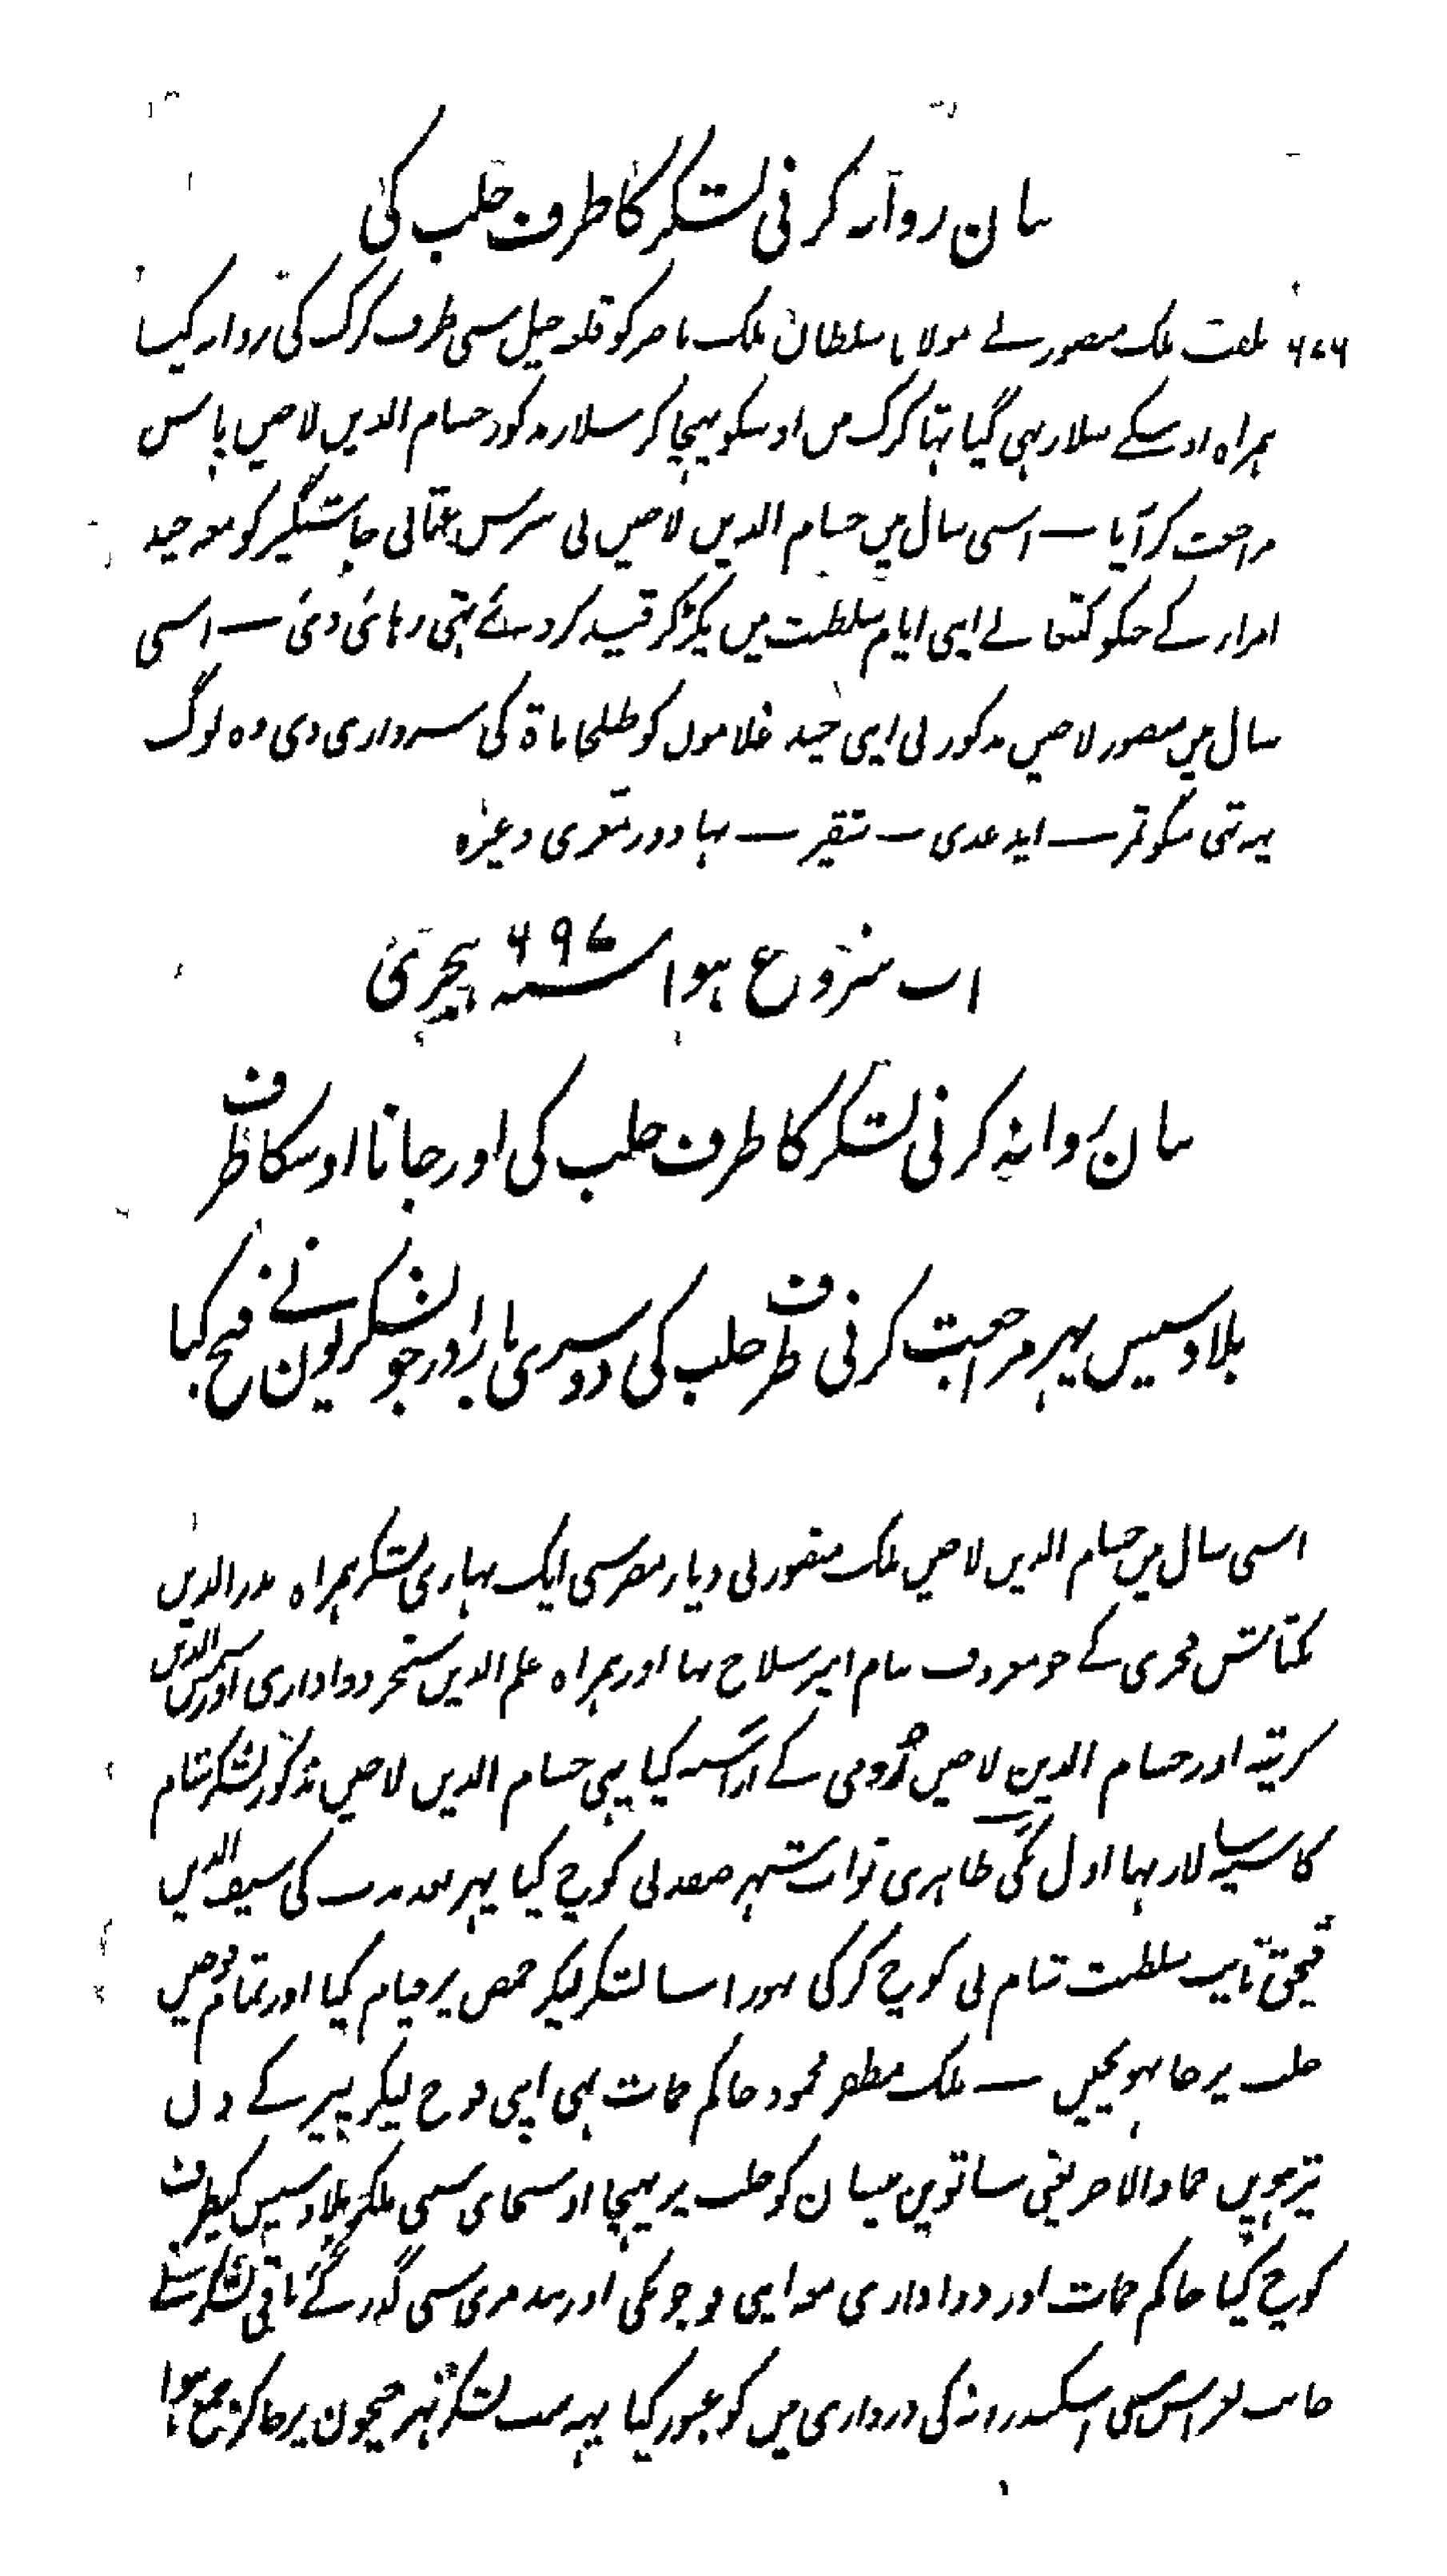 بیان روانہ کرنی لشکر کا طرف حلب کی
ملک منصور نے مولانا سلطان ملک ناصر کو قلعہ جبل سی طرف کرک کی روانہ کیا
ہمراہ اوسکے سلار بہی گیا تہا کرک میں اوسکو پہنچا کر سلار مذکور حسام الدین لاجین پاس
مراجعت کر آیا — اسی سال میں حسام الدین لاجین نی بیبرس جاشنگیر کو معہ چند
امراء کے جنکو کتبغا نے اپنی ایام سلطنت میں پکڑ کر قید کر دیئے تہی رہائی دی — اسی
سال میں منصور لاجین مذکور نی اپنی چند غلاموں کو طبلخاناۃ کی سرداری دی وہ لوگ
یہ تہی منکوتمر — ایدغدی — شقیر — بہادور وغیرہ
اب شروع ہوا سنہ ۶۹۷ ہجری
بیان روانہ کرنی لشکر کا طرف حلب کی اور جانا اوسکا طرف
بلاد سیس پہر مراجعت کرنی طرف حلب کی دوسری بار اور جو لشکریون نے فتح کیا
اسی سال میں حسام الدین لاجین ملک منصور نی دیار مصر سی ایک بہاری لشکر ہمراہ بدر الدین
بکتاش فخری کے جو معروف بنام امیر سلاح تہا اور ہمراہ علم الدین سنجر دواداری اور شمس الدین
کریتہ اور حسام الدین لاجین رومی کے آراستہ کیا یہی حسام الدین لاجین مذکور لشکر شام
کا سپہ سالار تہا اول بکی ظاہری نواب شہر صفد نی کوچ کیا پہر بعد مدت کی سیف الدین
قبجق نایب سلطنت شام نی کوچ کر کی تہوڑا سا لشکر لیکر حمص پر قیام کیا اور تمام فوجیں
حلب پر جا پہونچیں — ملک مظفر محمود حاکم حمات بہی اپنی فوج لیکر پیر کے دن
تیرہویں جمادالاخر یعنی ساتویں نیسان کو حلب پر پہنچا اوسجای سی ملکر بلاد سیس کیطرف
کوچ کیا حاکم حمات اور دواداری معہ اپنی فوجونکی اور بند مری سی گذر گئے باقی لشکر نے
جانب بغراس سی اسکندرانہ کی درواری میں کو عبور کیا یہہ سب لشکر نہر جیحون پر جا کر جمع ہوا